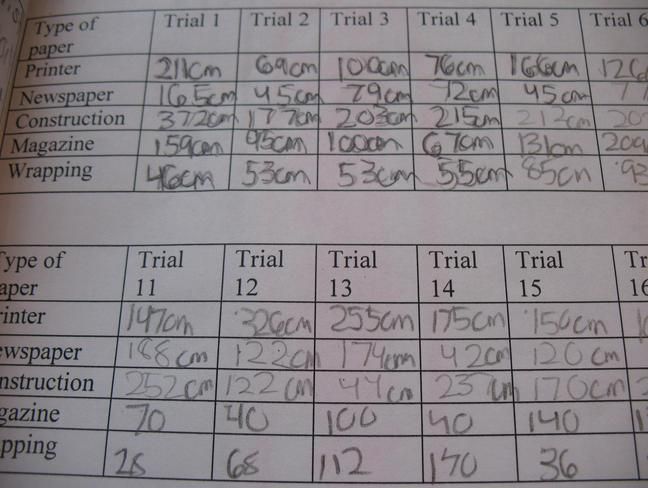 Type of paper Trial 1 Trial 2 Trial 3 Trial 4 Trial 5 Trial 6
Printer 211cm 69cm 100cm 76cm 166cm 126
Newspaper 16.5cm 45cm 79cm 72cm 45cm 77
Construction 372cm 177cm 203cm 215cm 212cm 20
Magazine 159cm 95cm 100cm 67cm 131cm 200
Wrapping 46cm 53cm 53cm 55cm 85cm 93
Type of aper Trial 11 Trial 12 Trial 13 Trial 14 Trial 15 Tr 16
rinter 147cm 326cm 255cm 175cm 150cm
ewspaper 188cm 122cm 174cm 42cm 120cm
nstruction 252cm 122cm 44cm 237cm 170cm
gazine 70 40 100 40 140
pping 28 68 112 170 36